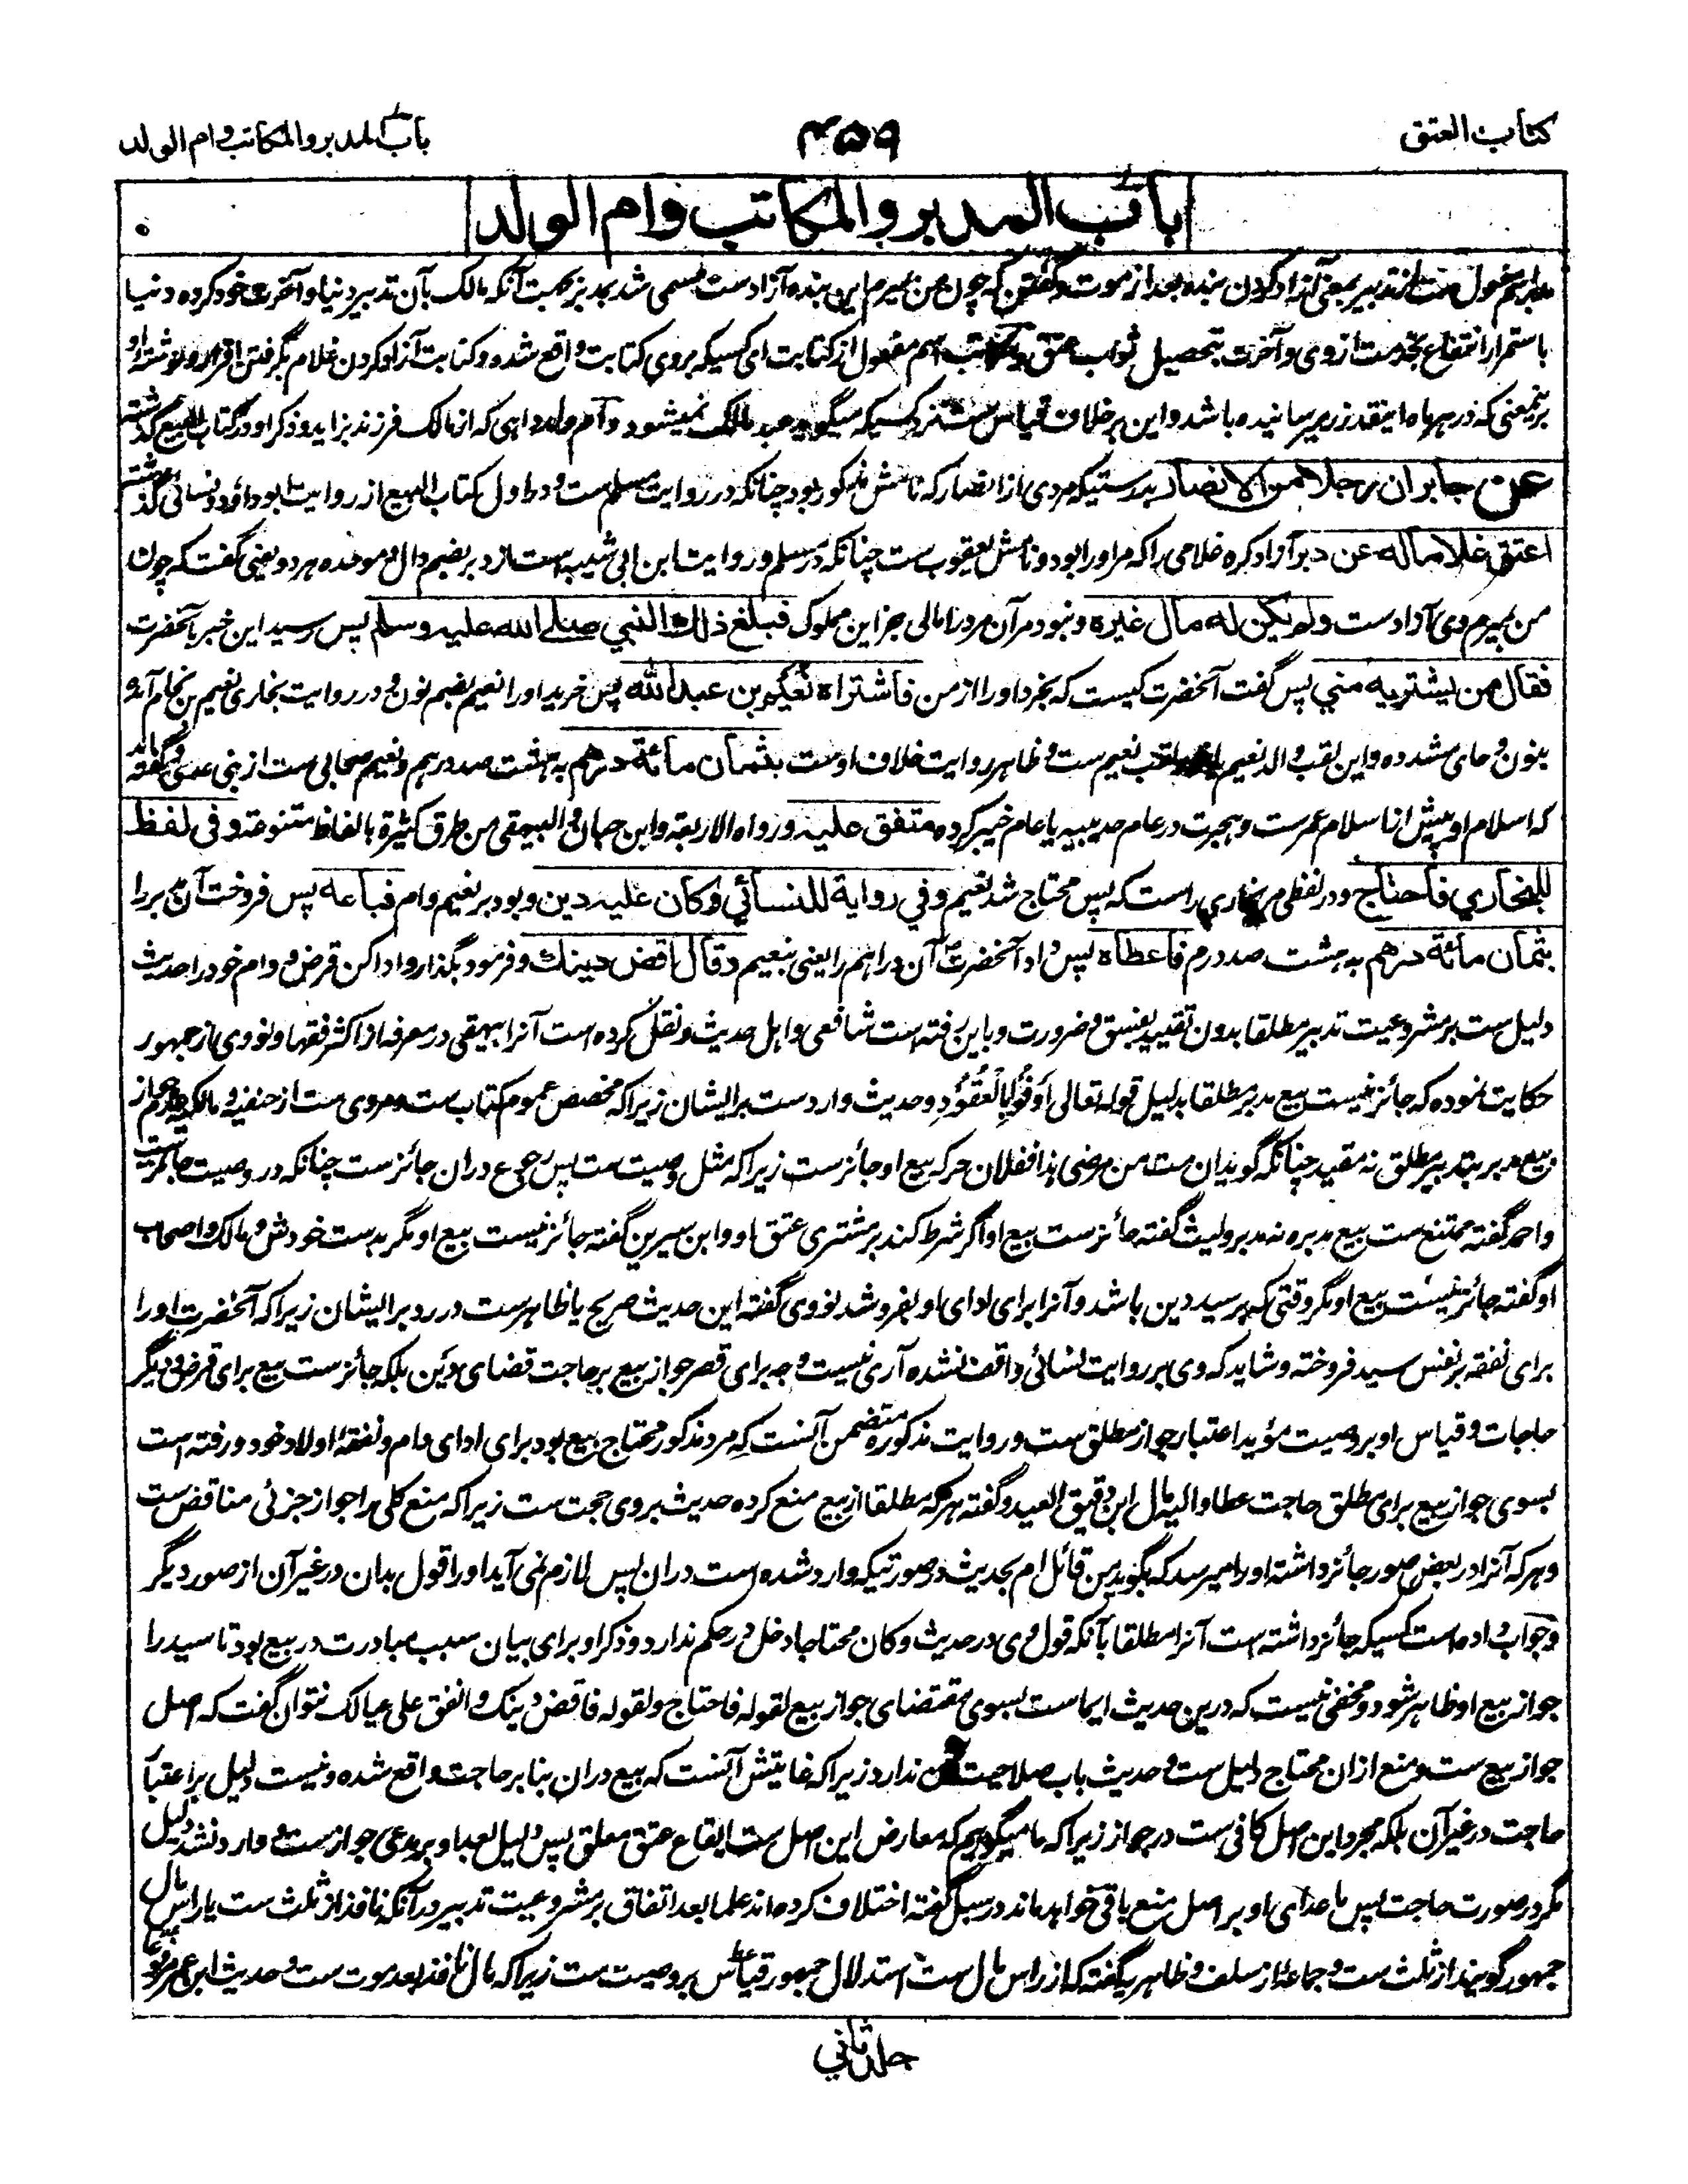 کتاب العتق
۴۵۹
باب المدبر والمکاتب وام الولد
باب المدبر والمکاتب وام الولد
اسم مفعول ست از تدبیر بمعنی آزاد کردن بنده بعد از موت و گفتن که چون من بمیرم این بنده آزادست مسمی شد بدبر بجهت آنکه مالک بآن تدبیر دنیا و آخرت خود کرده دنیا
باستمرار انتفاع بخدمت از وی و آخرت بتحصیل ثواب عتق و مکاتب اسم مفعول از کتابت ای کسیکه بروی کتابت واقع شده و کتابت آزاد کردن غلام بگرفتن اقرار و نوشته او
برینمعنی که در ماه اینقدر زر میرسانیده باشد و این برخلاف قیاس ست نزد کسیکه میگوید عبد مالک نمیشود و ام ولد داهی که از مالک فرزند بزاید و ذکر او در کتاب البیع گذشته
عن جابر ان رجلا من الانصار بدرستیکه مردی از انصار که نامش مذکور بود چنانکه در روایت مسلم ست و در اول کتاب البیع از روایت ابوداؤد و نسائی گذشته
اعتق غلاما له عن دبر آزاد کرد غلامی را که مر او را بود و نامش یعقوب ست چنانکه در مسلم و روایت ابن ابی شیبه است از دبر بضم دال و موحده هر دو یعنی گفت که چون
من بمیرم وی آزادست ولم یکن له مال غیره و نبود مر آن مرد را مالی جز این مملوک فبلغ ذلك النبي صلی الله علیه وسلم پس رسید این خبر بآنحضرت
فقال من یشتریه مني پس گفت آنحضرت کیست که بخرد او را از من فاشتراه نعیم بن عبد الله پس خرید او را نعیم بضم نون و در روایت بخاری نعیم بن نحام آمده
بنون و حای مشدده و این لقب والد نعیم لقب نعیم ست و ظاهر روایت خلاف اوست بثمان مائة درهم به هشت صد درهم و نعیم صحابی ست از بنی عدی و گفته اند
که اسلام او پیش از اسلام عمرست و هجرت در عام حدیبیه یا عام خیبر کرده متفق علیه و رواه الاربعة و ابن حبان و البیهقی من طرق کثیرة بالفاظ متنوعة وفی لفظ
للبخاري فاحتاج و در لفظی مر بخاری راست که پس محتاج شد نعیم وفي روایة للنسائي وکان علیه دین و بود بر نعیم وام فباعه پس فروخت آن مدبر را
بثمان مائة درهم به هشت صد درم فاعطاه پس داد آنحضرت آن دراهم را یعنی بنعیم وقال اقض دینك و فرمود بگذار و ادا کن قرض و وام خود را حدیث
دلیل ست بر مشروعیت تدبیر مطلقا بدون تقیید بفسق و ضرورت و باین رفته است شافعی و اهل حدیث و نقل کرده است آنرا بیهقی در معرفه از اکثر فقها و نووی از جمهور
حکایت نموده که جائز نیست بیع مدبر مطلقا بدلیل قوله تعالی اوفوا بالعقود و حدیث واردست بر ایشان زیرا که مخصص عموم کتاب ست و مروی ست از حنفیه و مالکیه عدم جواز
بیع مدبر بتدبیر مطلق نه مقید چنانکه گوید ان مت من مرضی هذا ففلان حر که بیع او جائزست زیرا که مثل وصیت ست پس رجوع دران جائزست چنانکه در وصیت جائزست
واحمد گفته ممتنع ست بیع مدبره نه مدبر ولیث گفته جائزست بیع او اگر شرط کند بر مشتری عتق او و ابن سیرین گفته جائز نیست بیع او مگر بدست خودش و مالک و اصحاب
او گفته جائز نیست بیع او مگر وقتی که بر سید دین باشد و آنرا برای ادای او بفروشد نووی گفته این حدیث صریح یا ظاهرست در رد بر ایشان زیرا که آنحضرت او را
برای نفقه بر نفس سید فروخته و شاید که وی بر روایت نسائی واقف نشده آری نیست وجه برای قصر جواز بیع بر حاجت قضای دین بلکه جائزست بیع برای قرض و دیگر
حاجات و قیاس او بر وصیت مؤید اعتبار جواز مطلق ست و روایت مذکوره متضمن آنست که مرد مذکور محتاج بیع بود برای ادای وام و نفقۀ اولاد خود و رفته است
بسوی جواز بیع برای مطلق حاجت عطا و الیه مال ابن دقیق العید و گفته هر که مطلقا از بیع منع کرده حدیث بروی حجت ست زیرا که منع کلی را جواز جزئی مناقض ست
و هر که آنرا در بعض صور جائز داشته او را میرسد که بگوید من قائل ام بحدیث در صورتیکه وارد شده است دران پس لازم نمی آید او را قول بدان در غیر آن از صور دیگر
و جواب داده است کسیکه جائز داشته است آنرا مطلقا بآنکه قول وی در حدیث وکان محتاجا دخل در حکم ندارد و ذکر او برای بیان سبب مبادرت در بیع بود تا سید را
جواز بیع او ظاهر شود و مخفی نیست که درین حدیث ایماست بسوی مقتضای جواز بیع لقوله فاحتاج و لقوله فاقض دینک وانفق علی عیالک نتوان گفت که اصل
جواز بیع ست و منع ازان محتاج دلیل ست و حدیث باب صلاحیت آن ندارد زیرا که غایتش آنست که بیع دران بنا بر حاجت واقع شده و نیست دلیل بر اعتبار
حاجت در غیر آن بلکه مجرد این اصل کافی ست در جواز زیرا که ما میگوییم که معارض این اصل ست ایقاع عتق معلق پس دلیل بعد او بر مدعی جوازست و وارد نشد دلیل
مگر در صورت حاجت پس ماعدای او بر اصل منع باقی خواهد ماند در سبل گفته اختلاف کرده اند علما بعد اتفاق بر مشروعیت تدبیر در آنکه نافذ از ثلث ست یا راس مال
جمهور گویند از ثلث ست و جماعۀ از سلف و ظاهریه گفته که از راس مال ست استدلال جمهور قیاس بر وصیت ست زیرا که مال نافذ بعد موت ست و حدیث ابن عمر مرفوعا
جلد ثاني